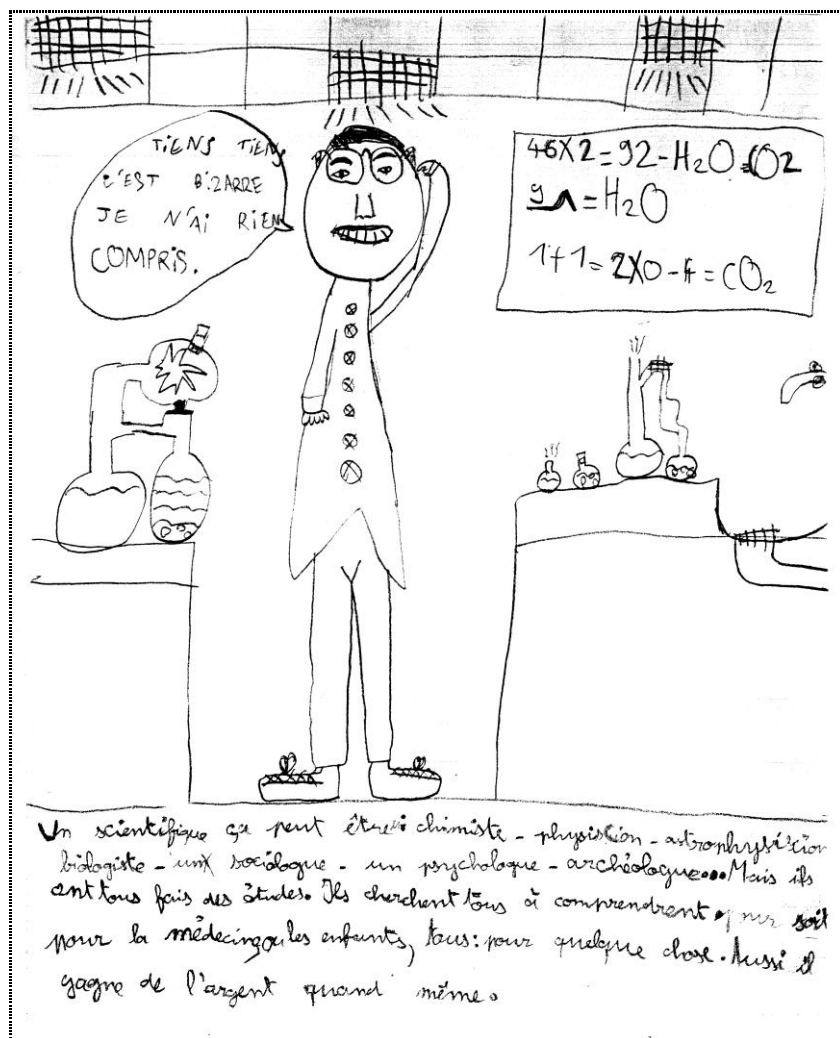 TIENS TIENS
C'EST BIZARRE
JE N'AI RIEN
COMPRIS.
46X2=92-H2O=CO2
=H2O
1+1=2X0-4=CO2
Un scientifique ça peut être chimiste - physiscion - astrophysiscion
biologiste - un sociologue - un psychologue - archéologue... Mais ils
ont tous fais des études. Ils cherchent tous à comprendrent soit
pour la médecine, les enfants, tous: pour quelque chose. Aussi il
gagne de l'argent quand même.